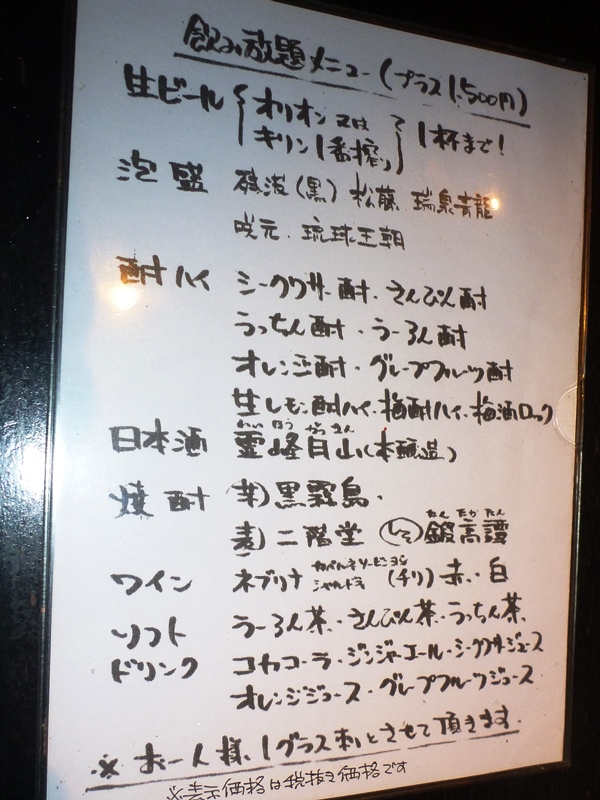 飲み放題メニュー(プラス1,500円)
生ビール{オリオン又は
キリン1番搾り}1杯まで!
泡盛 残波(黒)松藤、瑞泉青龍
咲元、琉球王朝
酎ハイ シークワサー酎・さんぴん酎
うっちん酎・うーろん酎
オレンジ酎・グレープフルーツ酎
生レモン酎ハイ・梅酎ハイ・梅酒ロック
日本酒 霊峰白山(本醸造)
れいほうはくさん
焼酎 芋)黒霧島・
麦)二階堂 しそ)鍛高譚
たんたかたん
ワイン ネブリナ カベルネソービニヨン
シャルドネ (チリ)赤・白
ソフト うーろん茶・さんぴん茶・うっちん茶、
ドリンク コカコーラ・ジンジャーエール・シークワサージュース
オレンジジュース・グレープフルーツジュース
※お一人様、1グラス制とさせて頂きます。
※表示価格は税抜き価格です